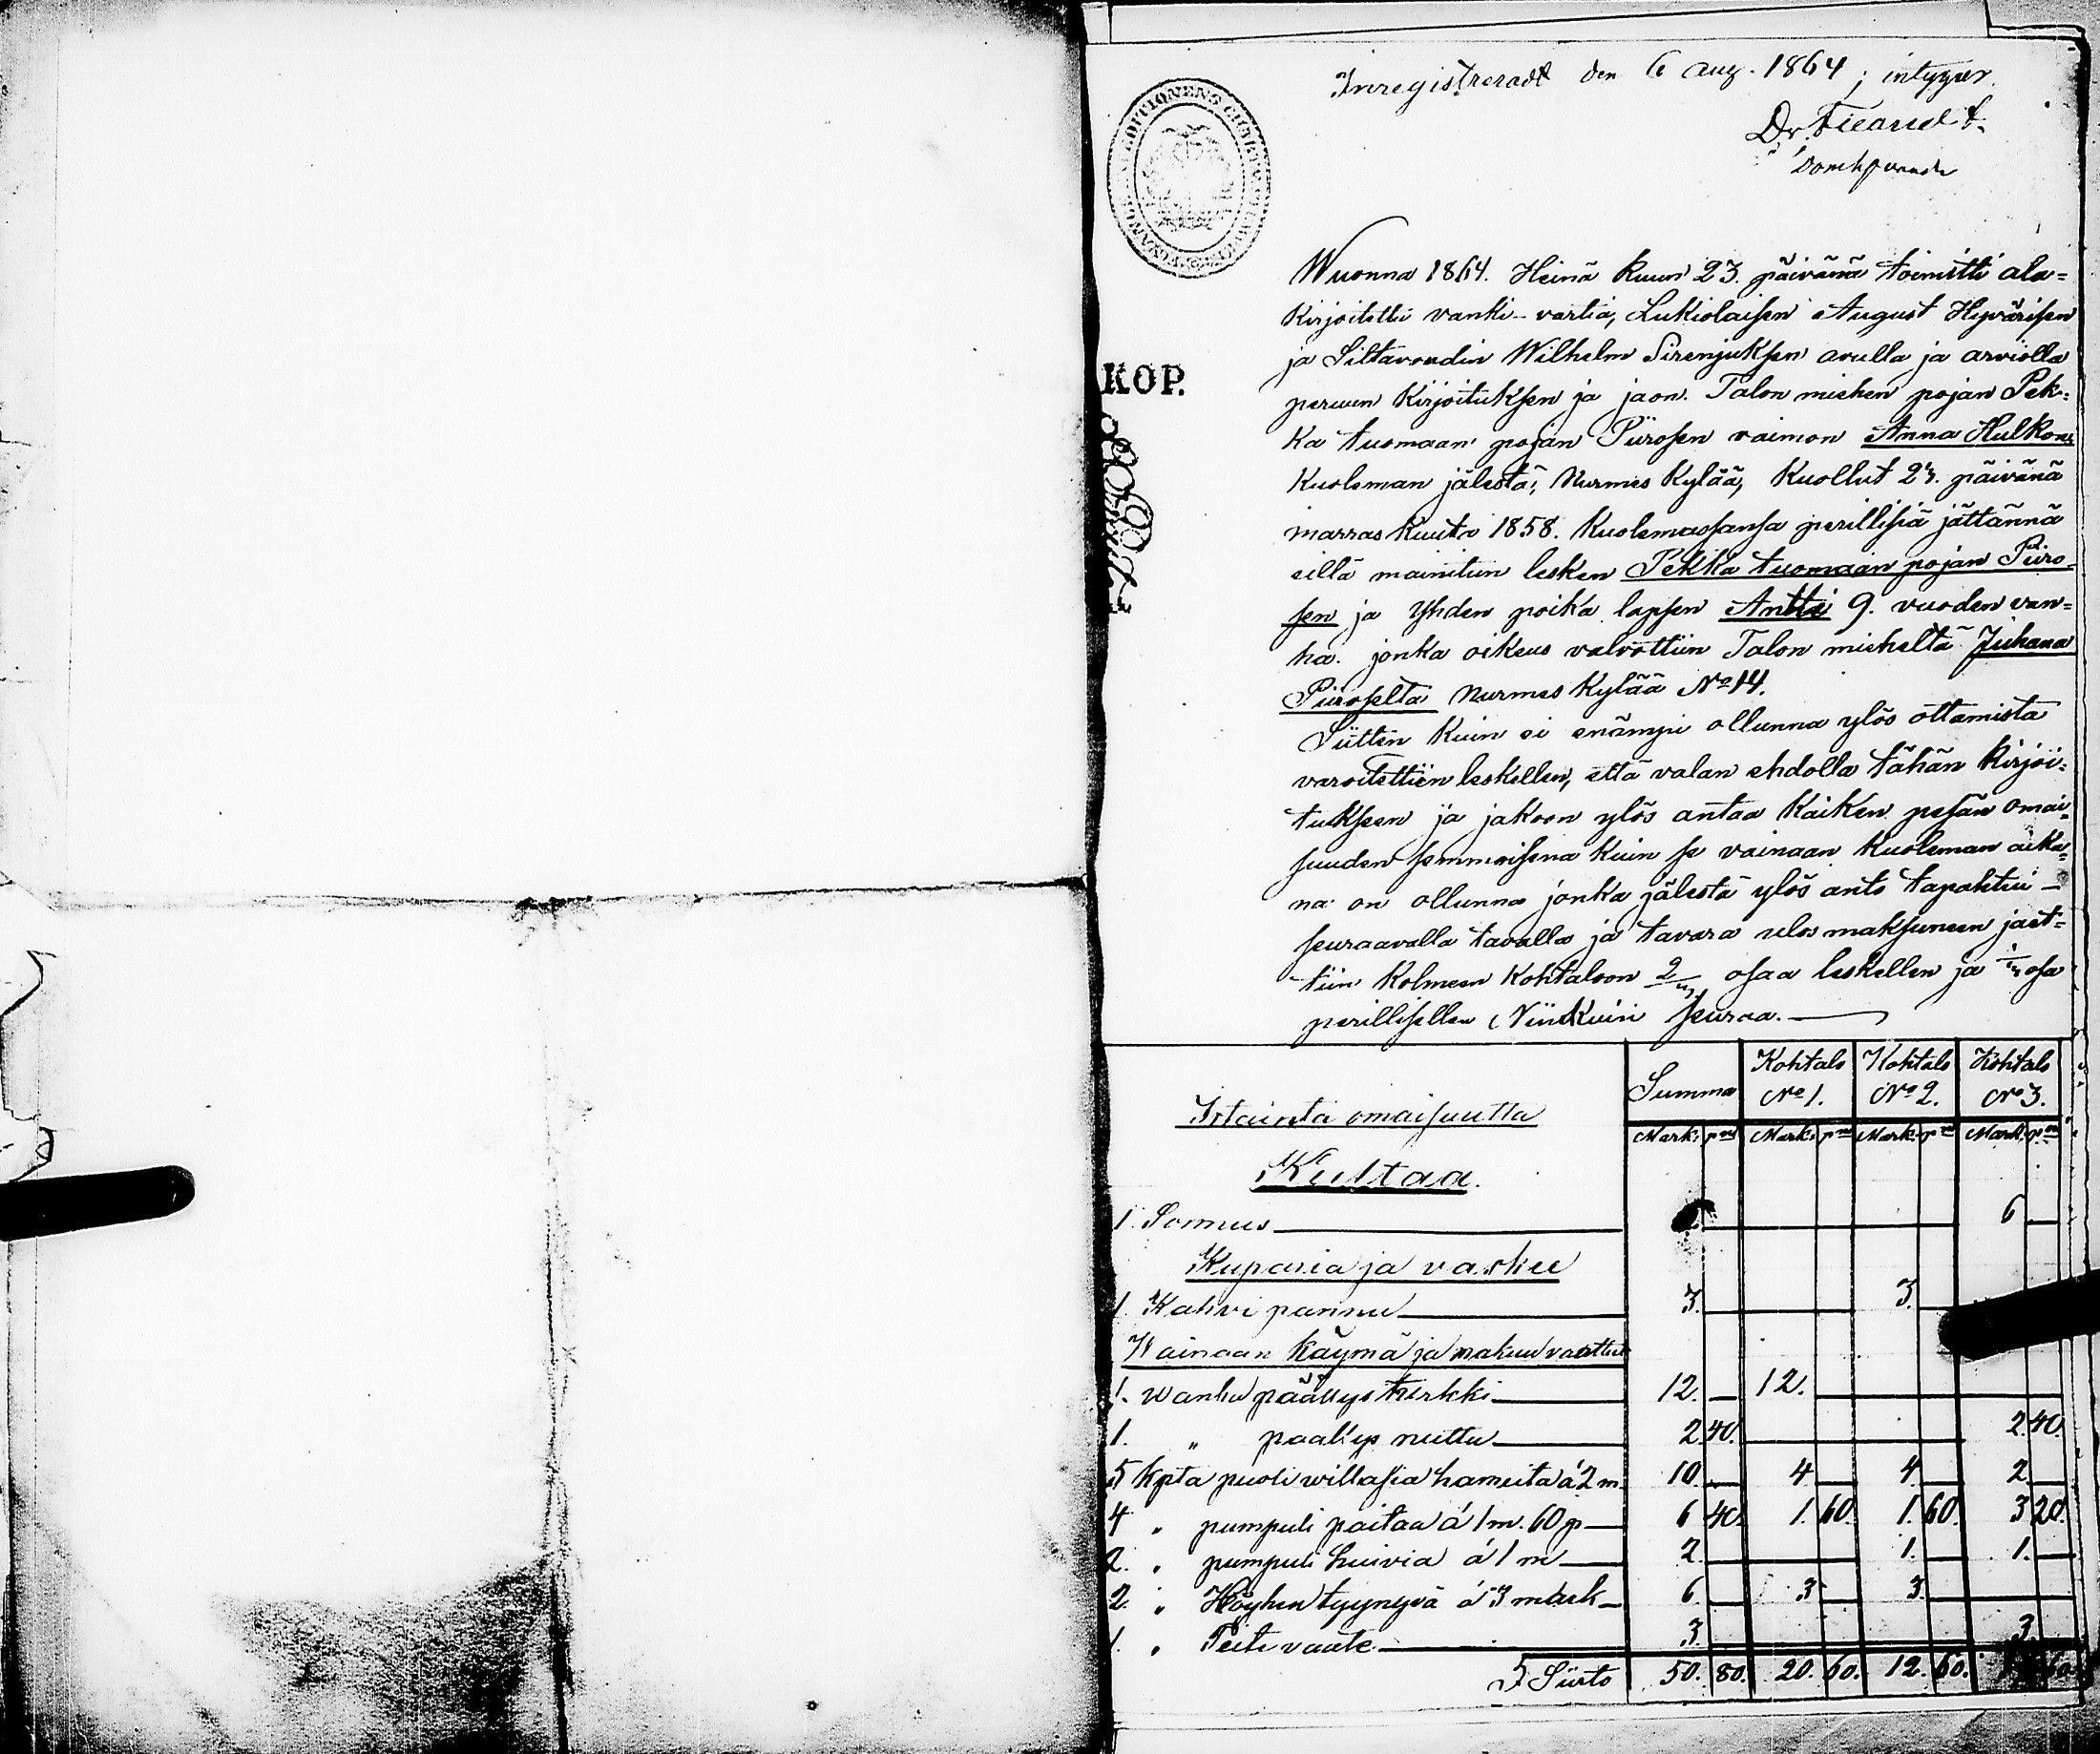 Inregistreradt den 6 aug. 1864; intygar
KOP.
Wuonna 1864. Heinä kuun 23. päivänä toimitti ala=
kirjoitettu vanki-vartia, Lukiolaisen August Hyvärisen
ja Siltavoudin Wilhelm Sirenjuksen avulla ja arviolla
perunn kirjoituksen ja jaon. Talon miehen pojan Pek=
ka tuomaan pojan Piirosen vaimon Anna Hulkonen
kuoleman jälestä, Nurmes kylää, kuollut 23. päivänä
marras kuuta 1858. kuolemassansa perillisiä jättännä
eillä mainitun lesken Pekka tuomaan pojan Piiro-
sen ja yhden poika lapsen Antti 9. vuoden van=
ha. jonka oikeus valvottiin Talon mieheltä Juhana
Piiroselta Nurmes kylää No 14.
Siitten kuin ei enämpi ollunna ylös ottamista
varoitettiin leskellen, että valan ehdolla tähän kirjoi=
tukseen ja jakoon ylös antaa kaiken pesän omai=
suuden semmoisena kuin se vainaan kuoleman aika=
na on ollunna jonka jälestä ylös anto tapahtui —
seuraavalla tavalla ja tavara ulos maksuneen jaet=
tiin kolmeen kohtaloon 2/3 osaa leskellen ja 1/3 osa
perillisellen Niinkuin seuraa. —
Summa Kohtalo No 1. Kohtalo No 2. Kohtalo No 3.
Irtainta omaisuutta
Mark. pni Mark. pni Mark. pni Mark. pni
Kultaa.
1. Sormus 6 —
Kuparia ja vaskee
1. Kahvi pannu 3. — 3. —
Wainaan käymä ja makuu vaattet
1. wanha päällys turkki 12. — 12. —
1. " paalys nuttu 2 40. 2 40.
5 kpta puoli willasia hameita á 2 m 10. — 4 — 4. — 2. —
4 " pumpuli paitaa á 1 m. 60 p 6 40. 1. 60. 1. 60. 3 20.
2. " pumpuli huivia á 1 m 2. — 1. — 1. —
2. " Höyhen tyynyä á 3 mark 6. — 3 — 3. —
1. " Peite vaate 3. 3.
Siirto 50. 80. 20. 60. 12. 60.